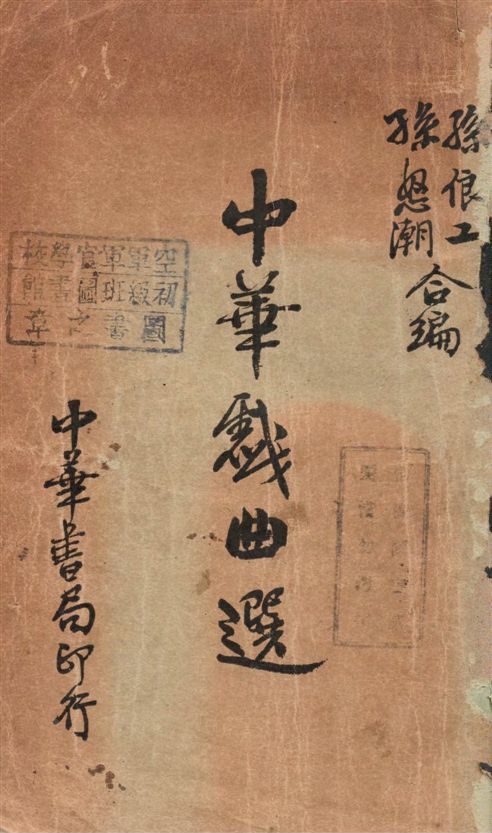 孫俍工
孫怒潮 合編
中華戲曲選
空軍軍官學校
初級班圖書館
圖書之章
中華書局印行